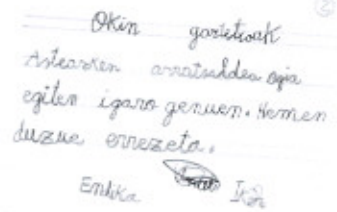 2
Okin gaztetxoak
Astearten arratsaldea ogia
egiten igaro genuen. Hemen
duzue errezeta.
Enhika